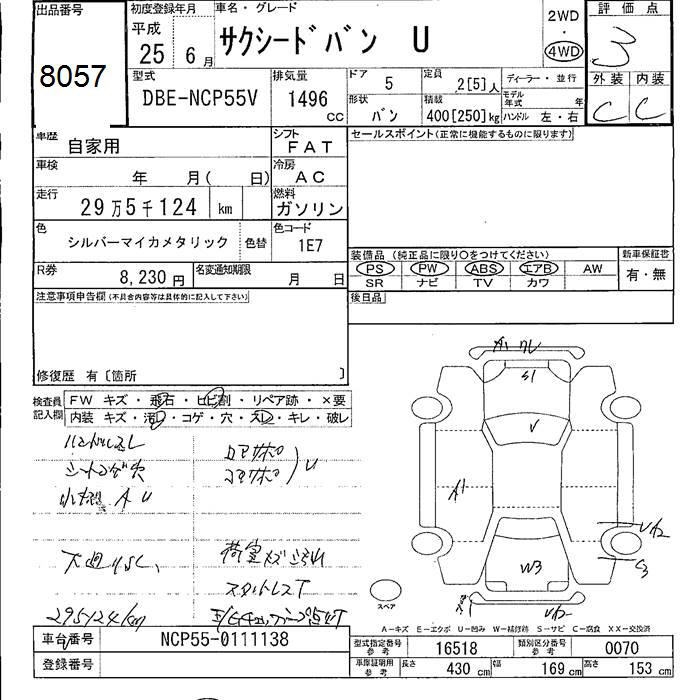 出品番号
8057
初度登録年月
平成
25 6 月
車名・グレード
サクシードバン U
2WD
・
4WD
評価点
3
外装 内装
C C
型式
DBE-NCP55V
排気量
1496
CC
ドア
5
定員
2[5]人
ディーラー・並行
形状
バン
積載
400[250]kg
モデル
年式
年
ハンドル 左・右
車歴
自家用
シフト
FAT
車検
年 月( 日)
冷房
AC
走行
29万5千124 km
燃料
ガソリン
色
シルバーマイカメタリック
色替
色コード
1E7
R券
8,230 円
名変通知期限
月 日
セールスポイント(正常に機能するものに限ります)
装備品(純正品に限り○をつけてください)
PS PW ABS エアB AW
SR ナビ TV カワ
新車保証書
有・無
後日品
注意事項申告欄(不具合内容等は具体的に記入して下さい)
修復歴 有〔箇所 〕
検査員
記入欄
FW キズ・飛石・ヒビ割・リペア跡・×要
内装 キズ・汚レ・コゲ・穴・スレ・キレ・破レ
ハンドルスレ
A U
U
下廻りSC、
295124km
S1
V
A1
W3
スペア
A-キズ E-エクボ U-凹み W-補修跡 S-サビ C-腐食 XX-交換済
車台番号
NCP55-0111138
登録番号
型式指定番号
参考
16518
類別区分番号
参考
0070
車庫証明用
参考
長さ
430 cm
幅
169 cm
高さ
153 cm